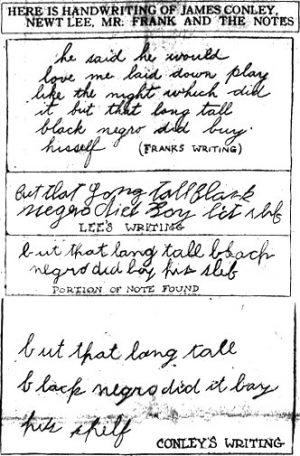 HERE IS HANDWRITING OF JAMES CONLEY,
NEWT LEE, MR. FRANK AND THE NOTES
he said he would
love me laid down play
like the night which did
it but that long tall
black negro did buy
hisself (FRANKS WRITING)
But that gong tall Black
negro died Boy
LEE'S WRITING
but that lang tall bback
negro did boy his sleb
PORTION OF NOTE FOUND
but that lang tall
black negro did it bay
his shelf CONLEY'S WRITING